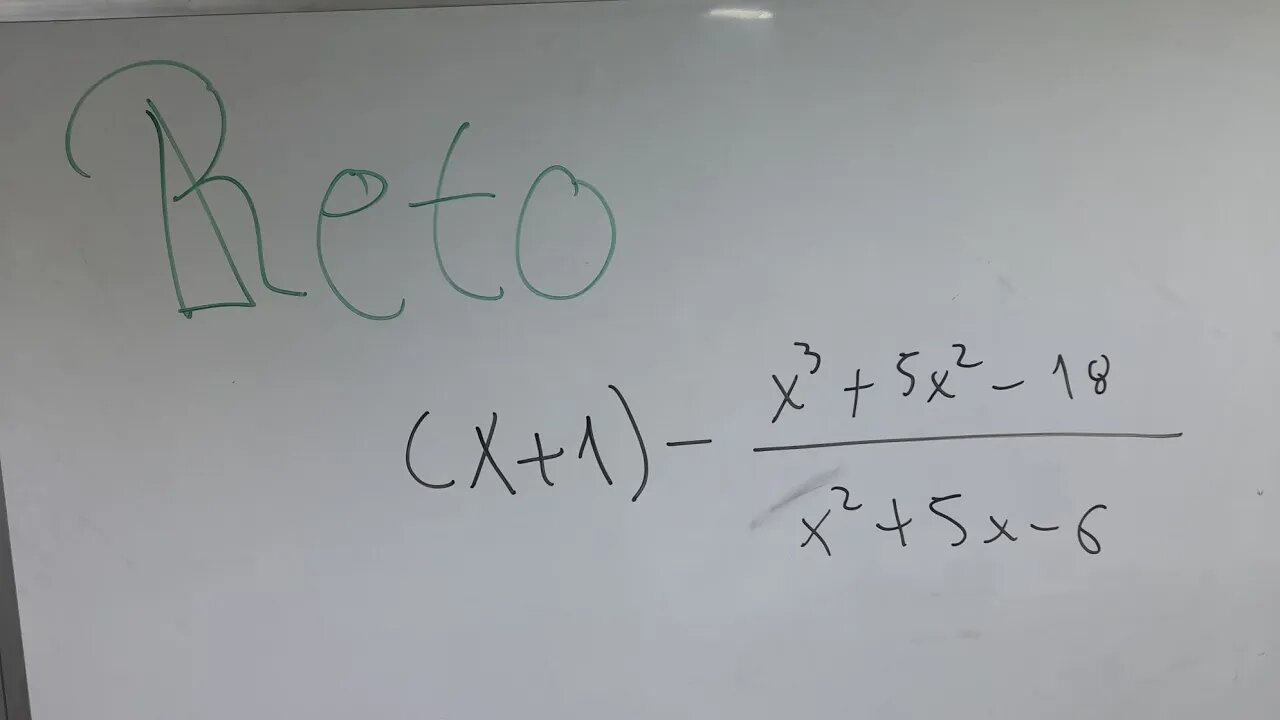 Reto
(x+1) - \frac{x^3 + 5x^2 - 18}{x^2 + 5x - 6}